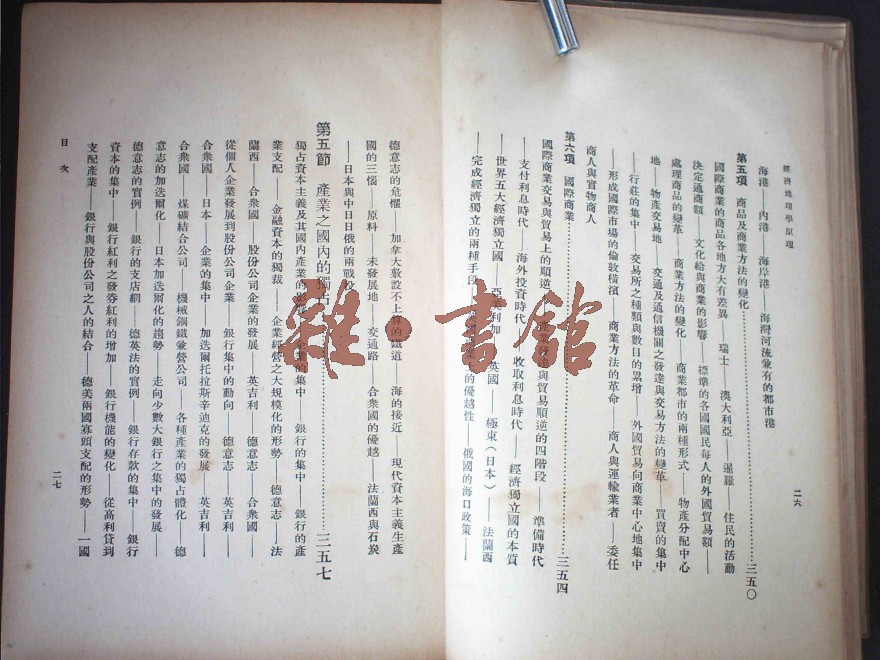 經濟地理學原理
二六
海港——內港——海岸港——海灣河流兼有的都市港
第五項　商品及商業方法的變化…………三五〇
國際商業的商品各地方大有差異——瑞士——澳大利亞——暹羅——住民的活動
決定通商額——文化給與商業的影響——標準的各國國民每人的外國貿易額——
處理商品的變革——商業方法的變化——商業都市的兩種形式——物產分配中心
地——物產交易地——交通及通信機關之發達與交易方法的變革——買賣的集中
——行莊的集中——交易所之種類與數目的累增——外國貿易向商業中心地集中
——形成國際市場的倫敦橫濱——商業方法的革命——商人與運輸業者——委任
商人與實物商人
第六項　國際商業…………三五四
國際商業交易與貿易上的順逆——產業發達與貿易順逆的四階段——準備時代
——支付利息時代——海外投資時代——收取利息時代——經濟獨立國的本質
——世界五大經濟獨立國——亞美利加——英國——極東（日本）——法蘭西
——完成經濟獨立的兩種手段——的優越性——俄國的海口政策——
德意志的危懼——加拿大敷設不上算的鐵道——海的接近——現代資本主義生產
國的三惱——原料——未發展地——交通路——合衆國的優越——法蘭西與石炭
——日本與中日日俄的兩戰役
第五節　產業之國內的獨占…………三五七
獨占資本主義及其國內產業的影響——企業的集中——銀行的集中——銀行的產
業支配——金融資本的獨裁——企業經營之大規模化的形勢——德意志——法
蘭西——合衆國——股份公司企業的發展——英吉利——德意志——合衆國——
從個人企業發展到股份公司企業——銀行集中的動向——德意志——英吉利——
合衆國——日本——企業的集中——加迭爾托拉斯辛迪克的發展——英吉利——
合衆國——煤礦結合公司——機械鋼鐵兼營公司——各種產業的獨占體化——德
意志的加迭爾化——日本加迭爾化的趨勢——走向少數大銀行之集中的發展——
德意志的實例——銀行的支店網——德英法的實例——銀行存款的集中——銀行
資本的集中——銀行紅利之發券紅利的增加——銀行機能的變化——從高利貸到
支配產業——銀行與股份公司之人的結合——德美兩國寡頭支配的形勢——一國
目次
二七
雜·書館